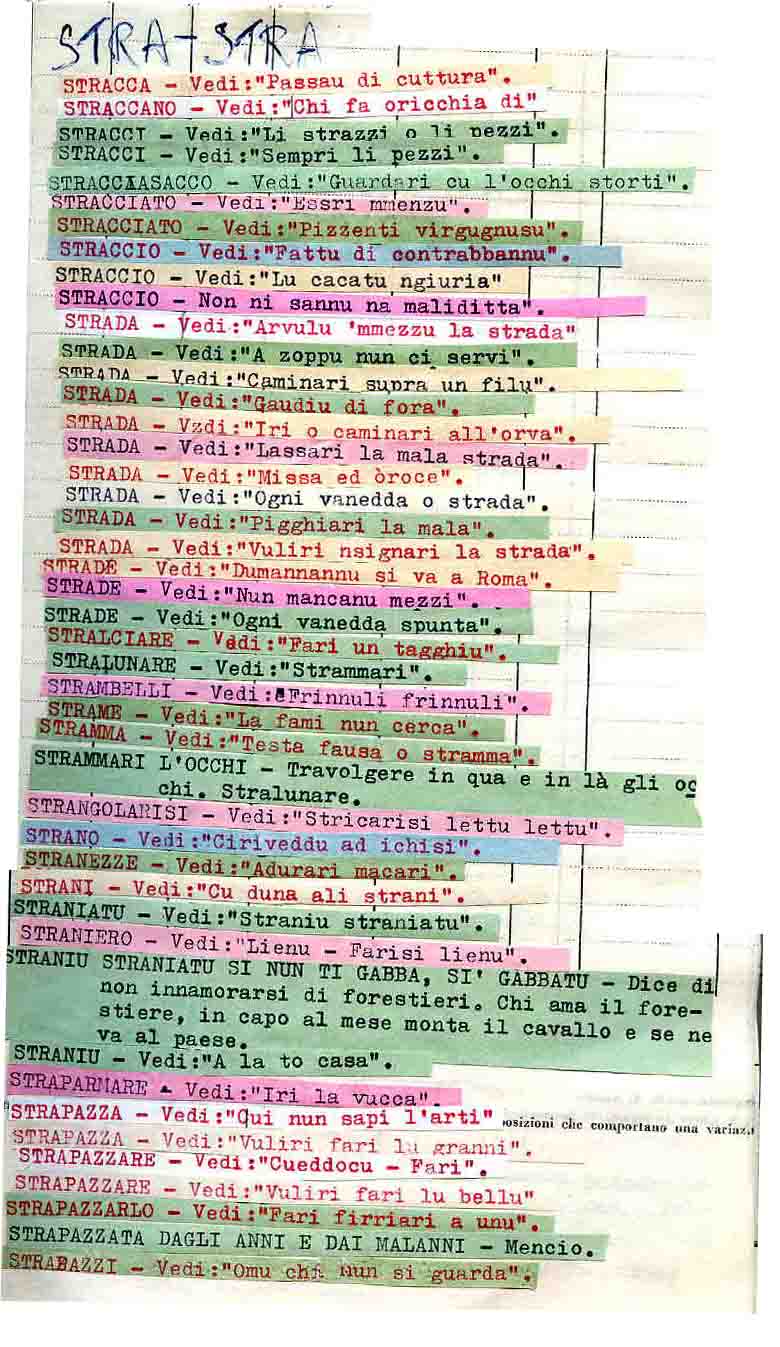 STRA-STRA
STRACCA - Vedi:"Passau di cuttura".
STRACCANO - Vedi:"Chi fa oricchia di"
STRACCI - Vedi:"Li strazzi o li pezzi".
STRACCI - Vedi:"Sempri li pezzi".
STRACCIASACCO - Vedi:"Guardari cu l'occhi storti".
STRACCIATO - Vedi:"Essri mmenzu".
STRACCIATO - Vedi:"Pizzenti virgugnusu".
STRACCIO - Vedi:"Fattu di contrabbannu".
STRACCIO - Vedi:"Lu cacatu ngiuria"
STRACCIO - Non ni sannu na maliditta".
STRADA - Vedi:"Arvulu 'mmezzu la strada"
STRADA - Vedi:"A zoppu nun ci servi".
STRADA - Vedi:"Caminari supra un filu".
STRADA - Vedi:"Gaudiu di fora".
STRADA - Vzdi:"Iri o caminari all'orva".
STRADA - Vedi:"Lassari la mala strada".
STRADA - Vedi:"Missa ed òroce".
STRADA - Vedi:"Ogni vanedda o strada".
STRADA - Vedi:"Pigghiari la mala".
STRADA - Vedi:"Vuliri nsignari la strada".
STRADE - Vedi:"Dumannannu si va a Roma".
STRADE - Vedi:"Nun mancanu mezzi".
STRADE - Vedi:"Ogni vanedda spunta".
STRALCIARE - Vedi:"Fari un tagghiu".
STRALUNARE - Vedi:"Strammari".
STRAMBELLI - Vedi:"Frinnuli frinnuli".
STRAME - Vedi:"La fami nun cerca".
STRAMMA - Vedi:"Testa fausa o stramma".
STRAMMARI L'OCCHI - Travolgere in qua e in là gli oc
chi. Stralunare.
STRANGOLARISI - Vedi:"Stricarisi lettu lettu".
STRANO - Vedi:"Ciriveddu ad ichisi".
STRANEZZE - Vedi:"Adurari macari".
STRANI - Vedi:"Cu duna ali strani".
STRANIATU - Vedi:"Straniu straniatu".
STRANIERO - Vedi:"Lienu - Farisi lienu".
STRANIU STRANIATU SI NUN TI GABBA, SI' GABBATU - Dice di
non innamorarsi di forestieri. Chi ama il fore-
stiere, in capo al mese monta il cavallo e se ne
va al paese.
STRANIU - Vedi:"A la to casa".
STRAPARMARE - Vedi:"Iri la vucca".
STRAPAZZA - Vedi:"Qui nun sapi l'arti" osizioni che comportano una variaz
STRAPAZZA - Vedi:"Vuliri fari lu granni".
STRAPAZZARE - Vedi:"Cueddocu - Fari".
STRAPAZZARE - Vedi:"Vuliri fari lu bellu"
STRAPAZZARLO - Vedi:"Fari firriari a unu".
STRAPAZZATA DAGLI ANNI E DAI MALANNI - Mencio.
STRABAZZI - Vedi:"Omu chi nun si guarda".